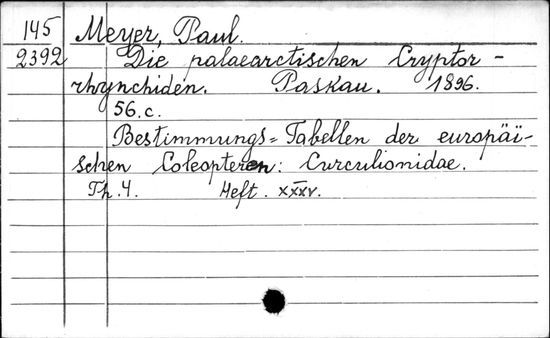 145 Meyer, Paul.
2392 Die palaearctischen Cryptor-
rhynchiden. Paskau. 1896.
56.c.
Bestimmungs=Tabellen der europäi-
schen Coleopteren: Curculionidae.
Th. 4. Heft. XXXV.